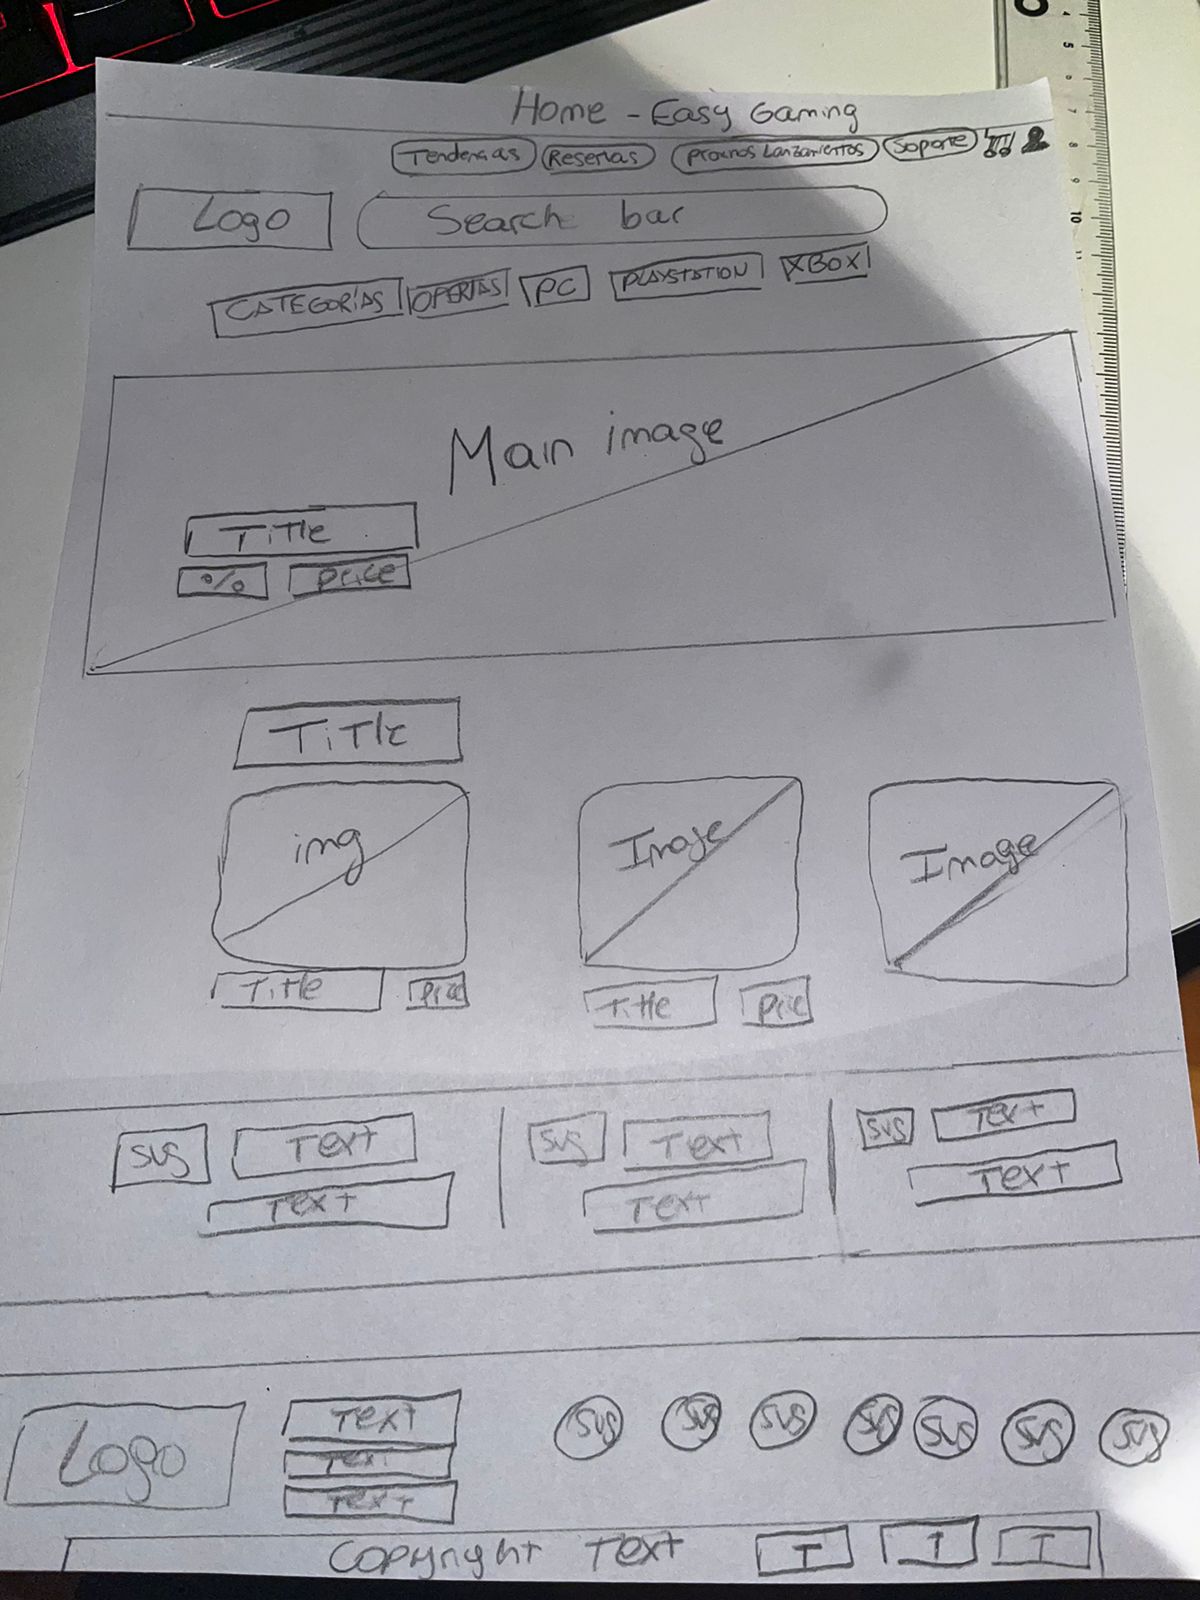 Home - Easy Gaming
Tendencias Reservas Proximos Lanzamientos Soporte
Logo Search bar
CATEGORÍAS OFERTAS PC PLAYSTATION XBOX
Main image
Title
% Price
Title
img Image Image
Title Price Title Price
SVG Text SVG Text SVG Text
Text Text Text
Logo Text SVG SVG SVG SVG SVG SVG SVG
Text
Text
Copyright Text T T T
10